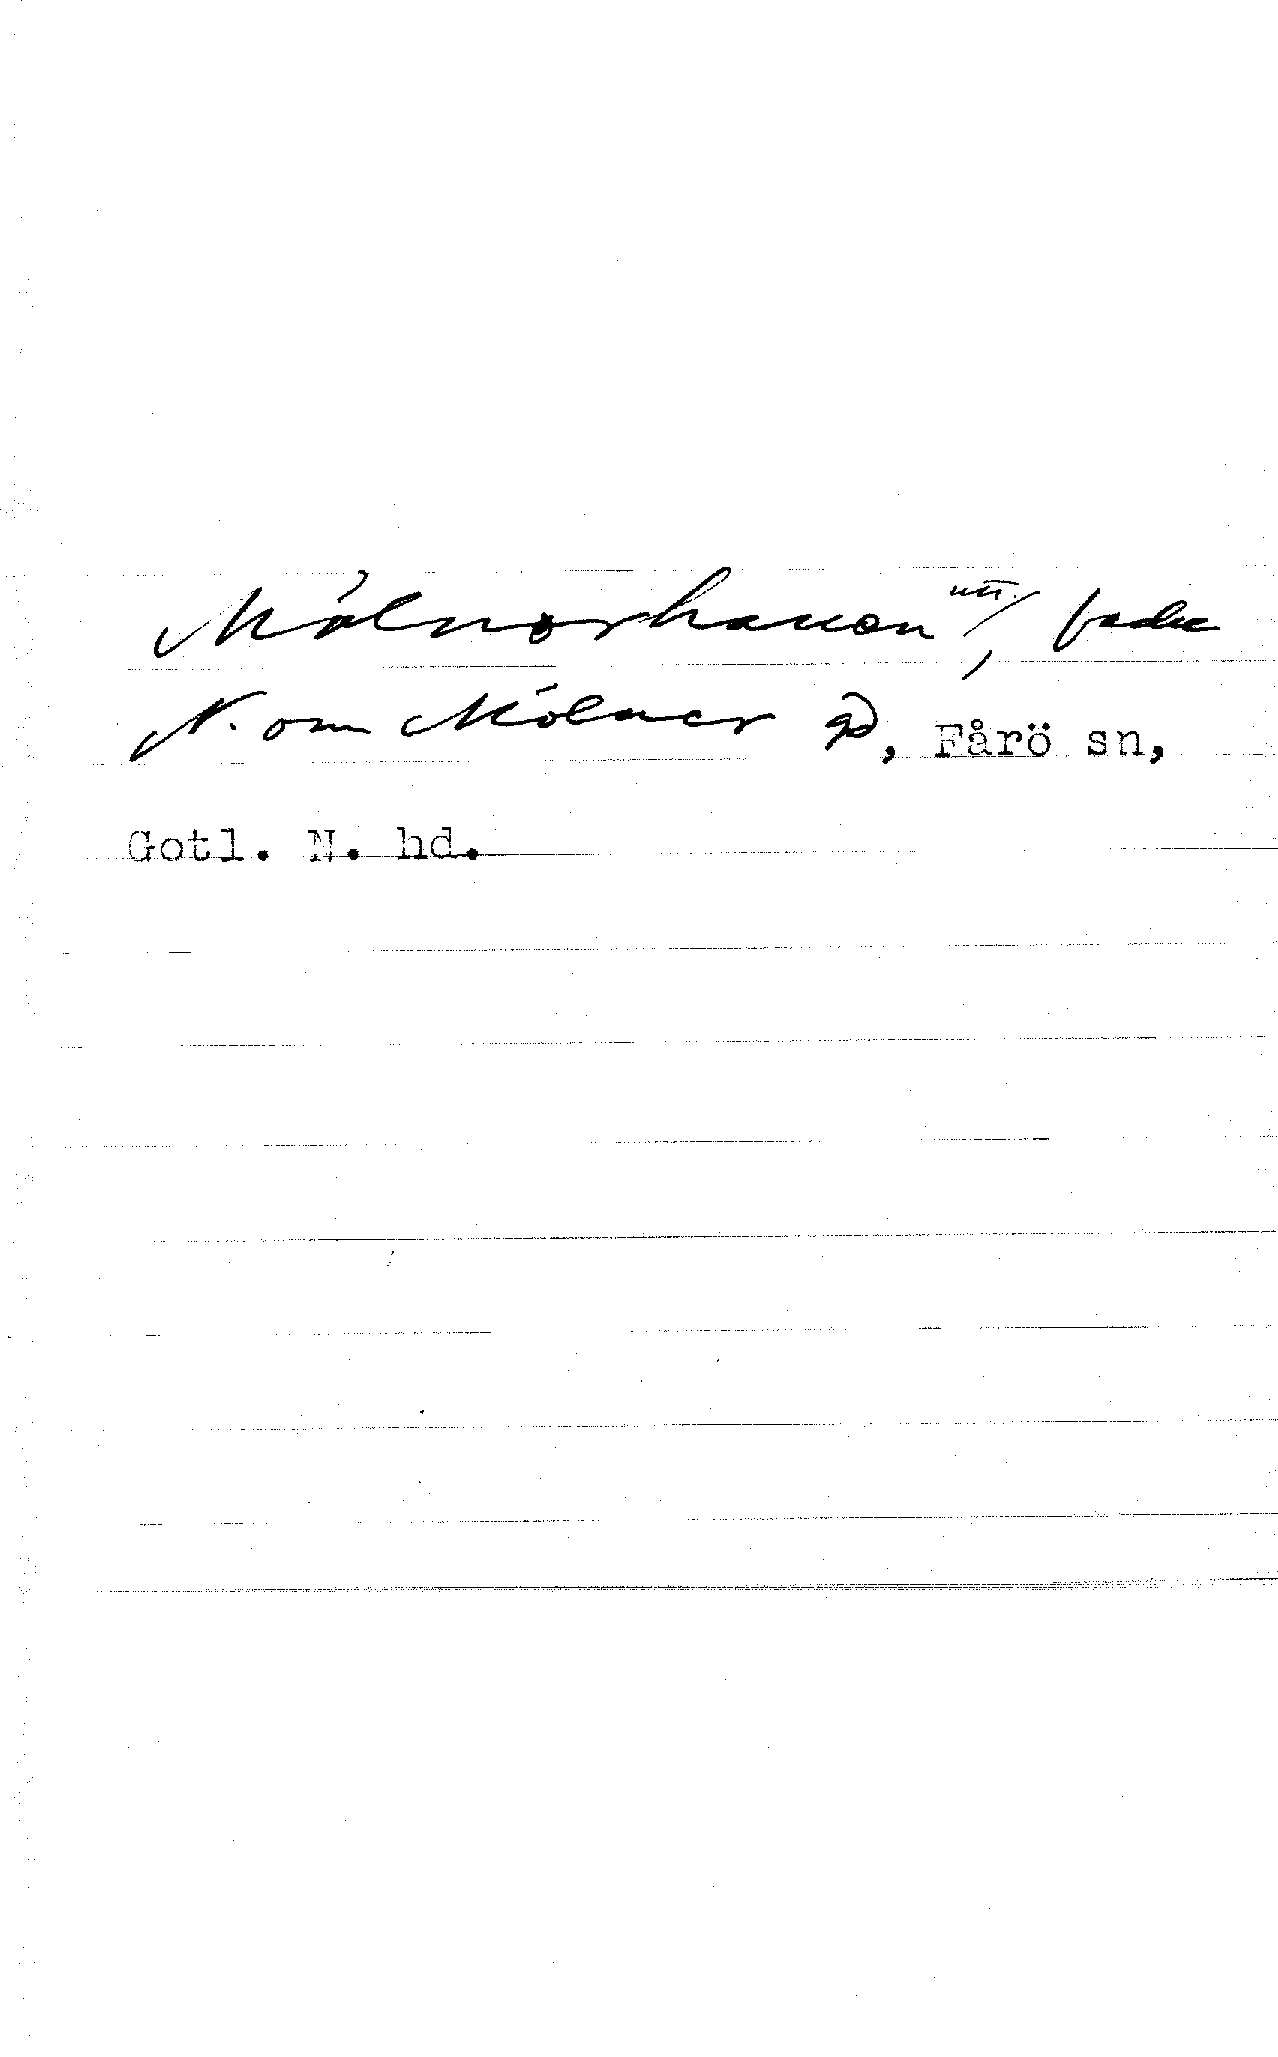 Mölnorhauen /, backe
N. om Mölner gd, Fårö sn,
Gotl. N. hd.